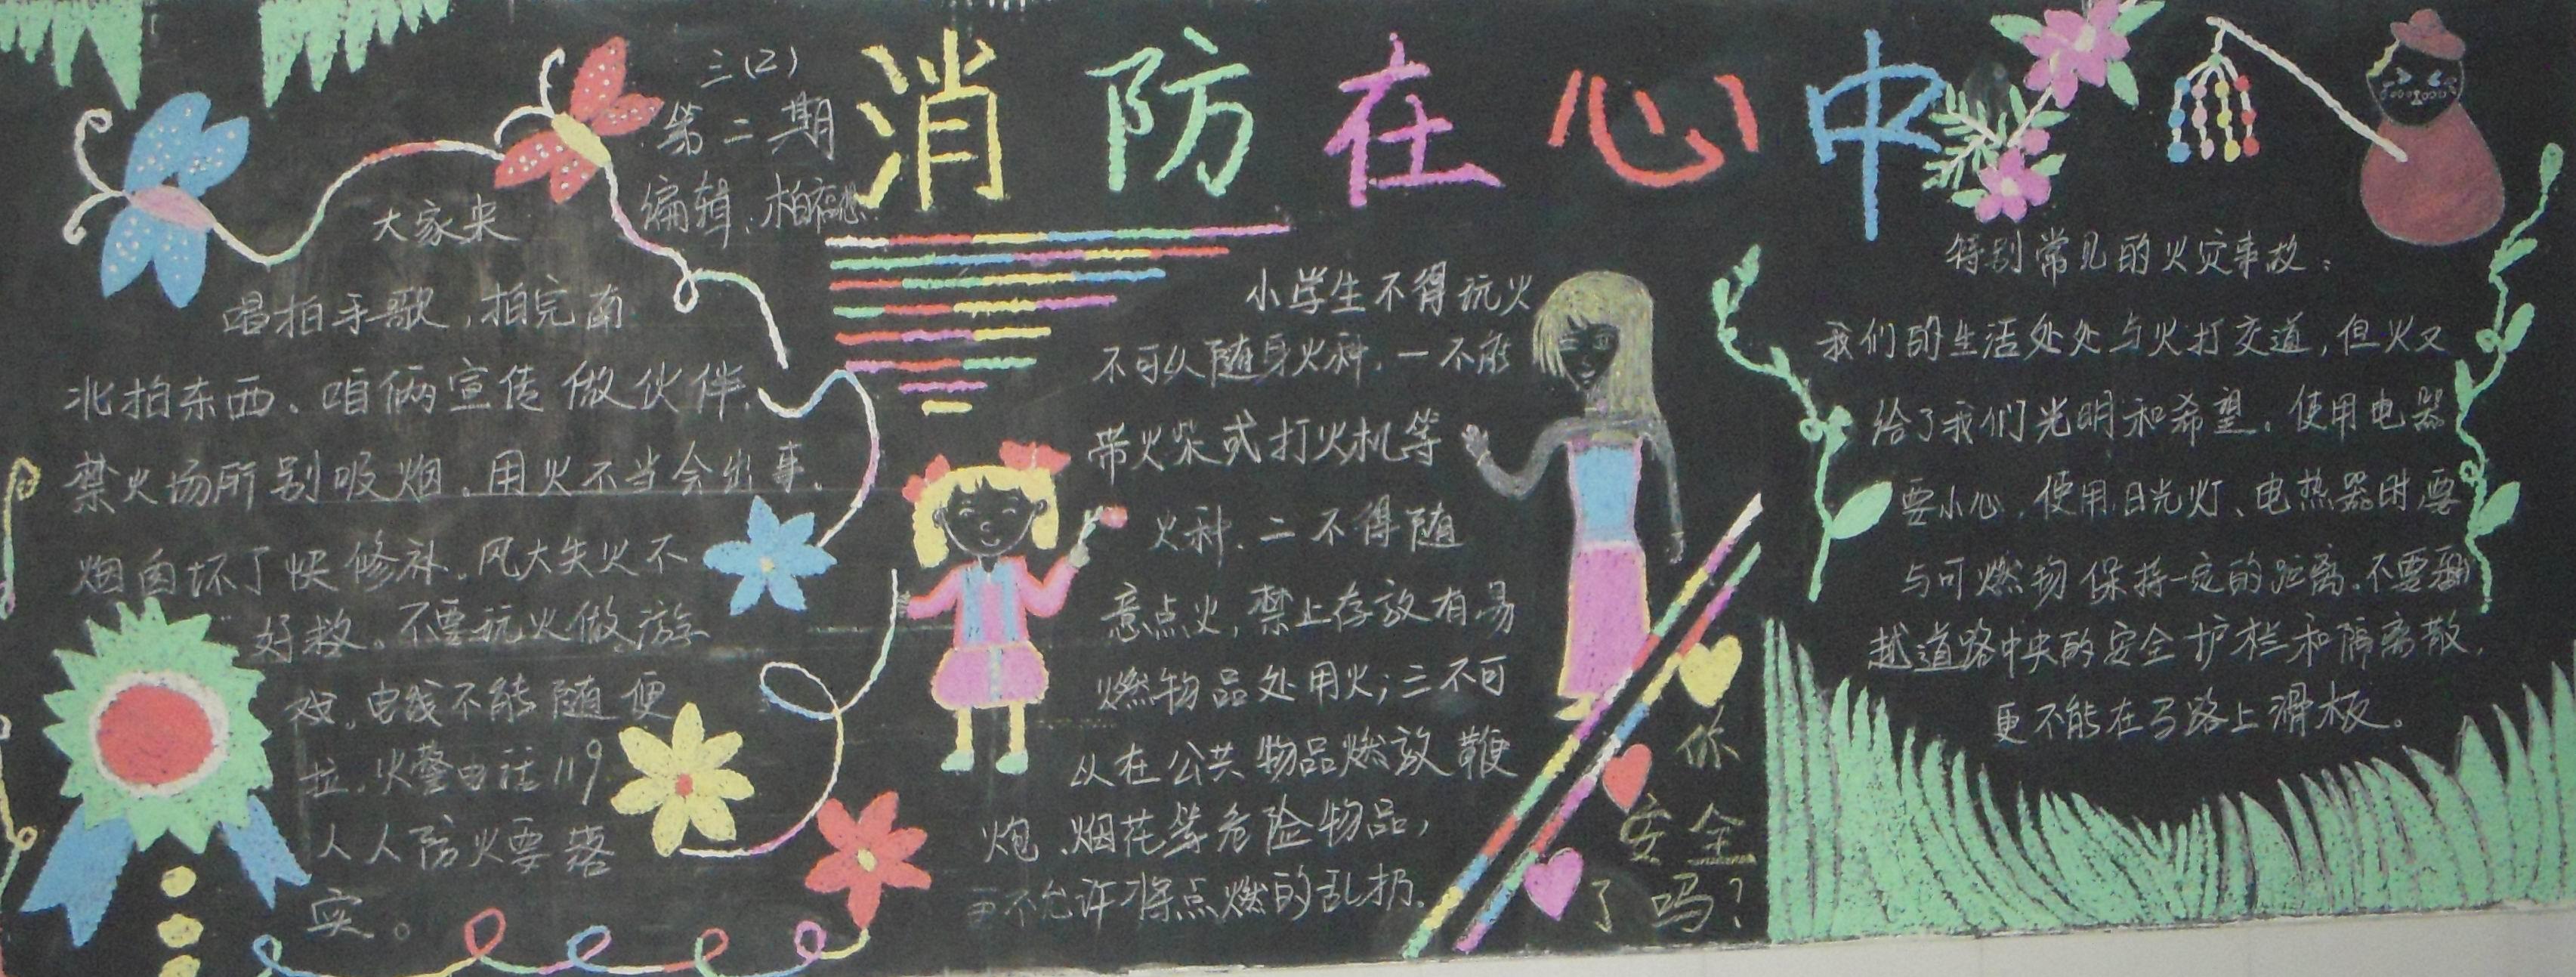 三(2)
第二期
编辑、柏
消防在心中
大家来
唱拍手歌，拍完南
北拍东西、咱俩宣传做伙伴、
禁火场所别吸烟、用火不当会出事、
烟囱坏了快修补、风大失火不
好救。不要玩火做游
戏。电线不能随便
拉、火警电话119
人人防火要落
实。
小学生不得玩火
不可以随身火种、一不能
带火柴或打火机等
火种、二不得随
意点火，禁止存放有易
燃物品处用火；三不可
以在公共物品燃放鞭
炮、烟花等危险物品，
更不允许将点燃的乱扔、
你
安全
了吗？
特别常见的火灾事故：
我们的生活处处与火打交道，但火又
给了我们光明和希望、使用电器
要小心、使用日光灯、电热器时要
与可燃物保持一定的距离、不要翻
越道路中央的安全护栏和隔离散、
更不能在马路上滑板。